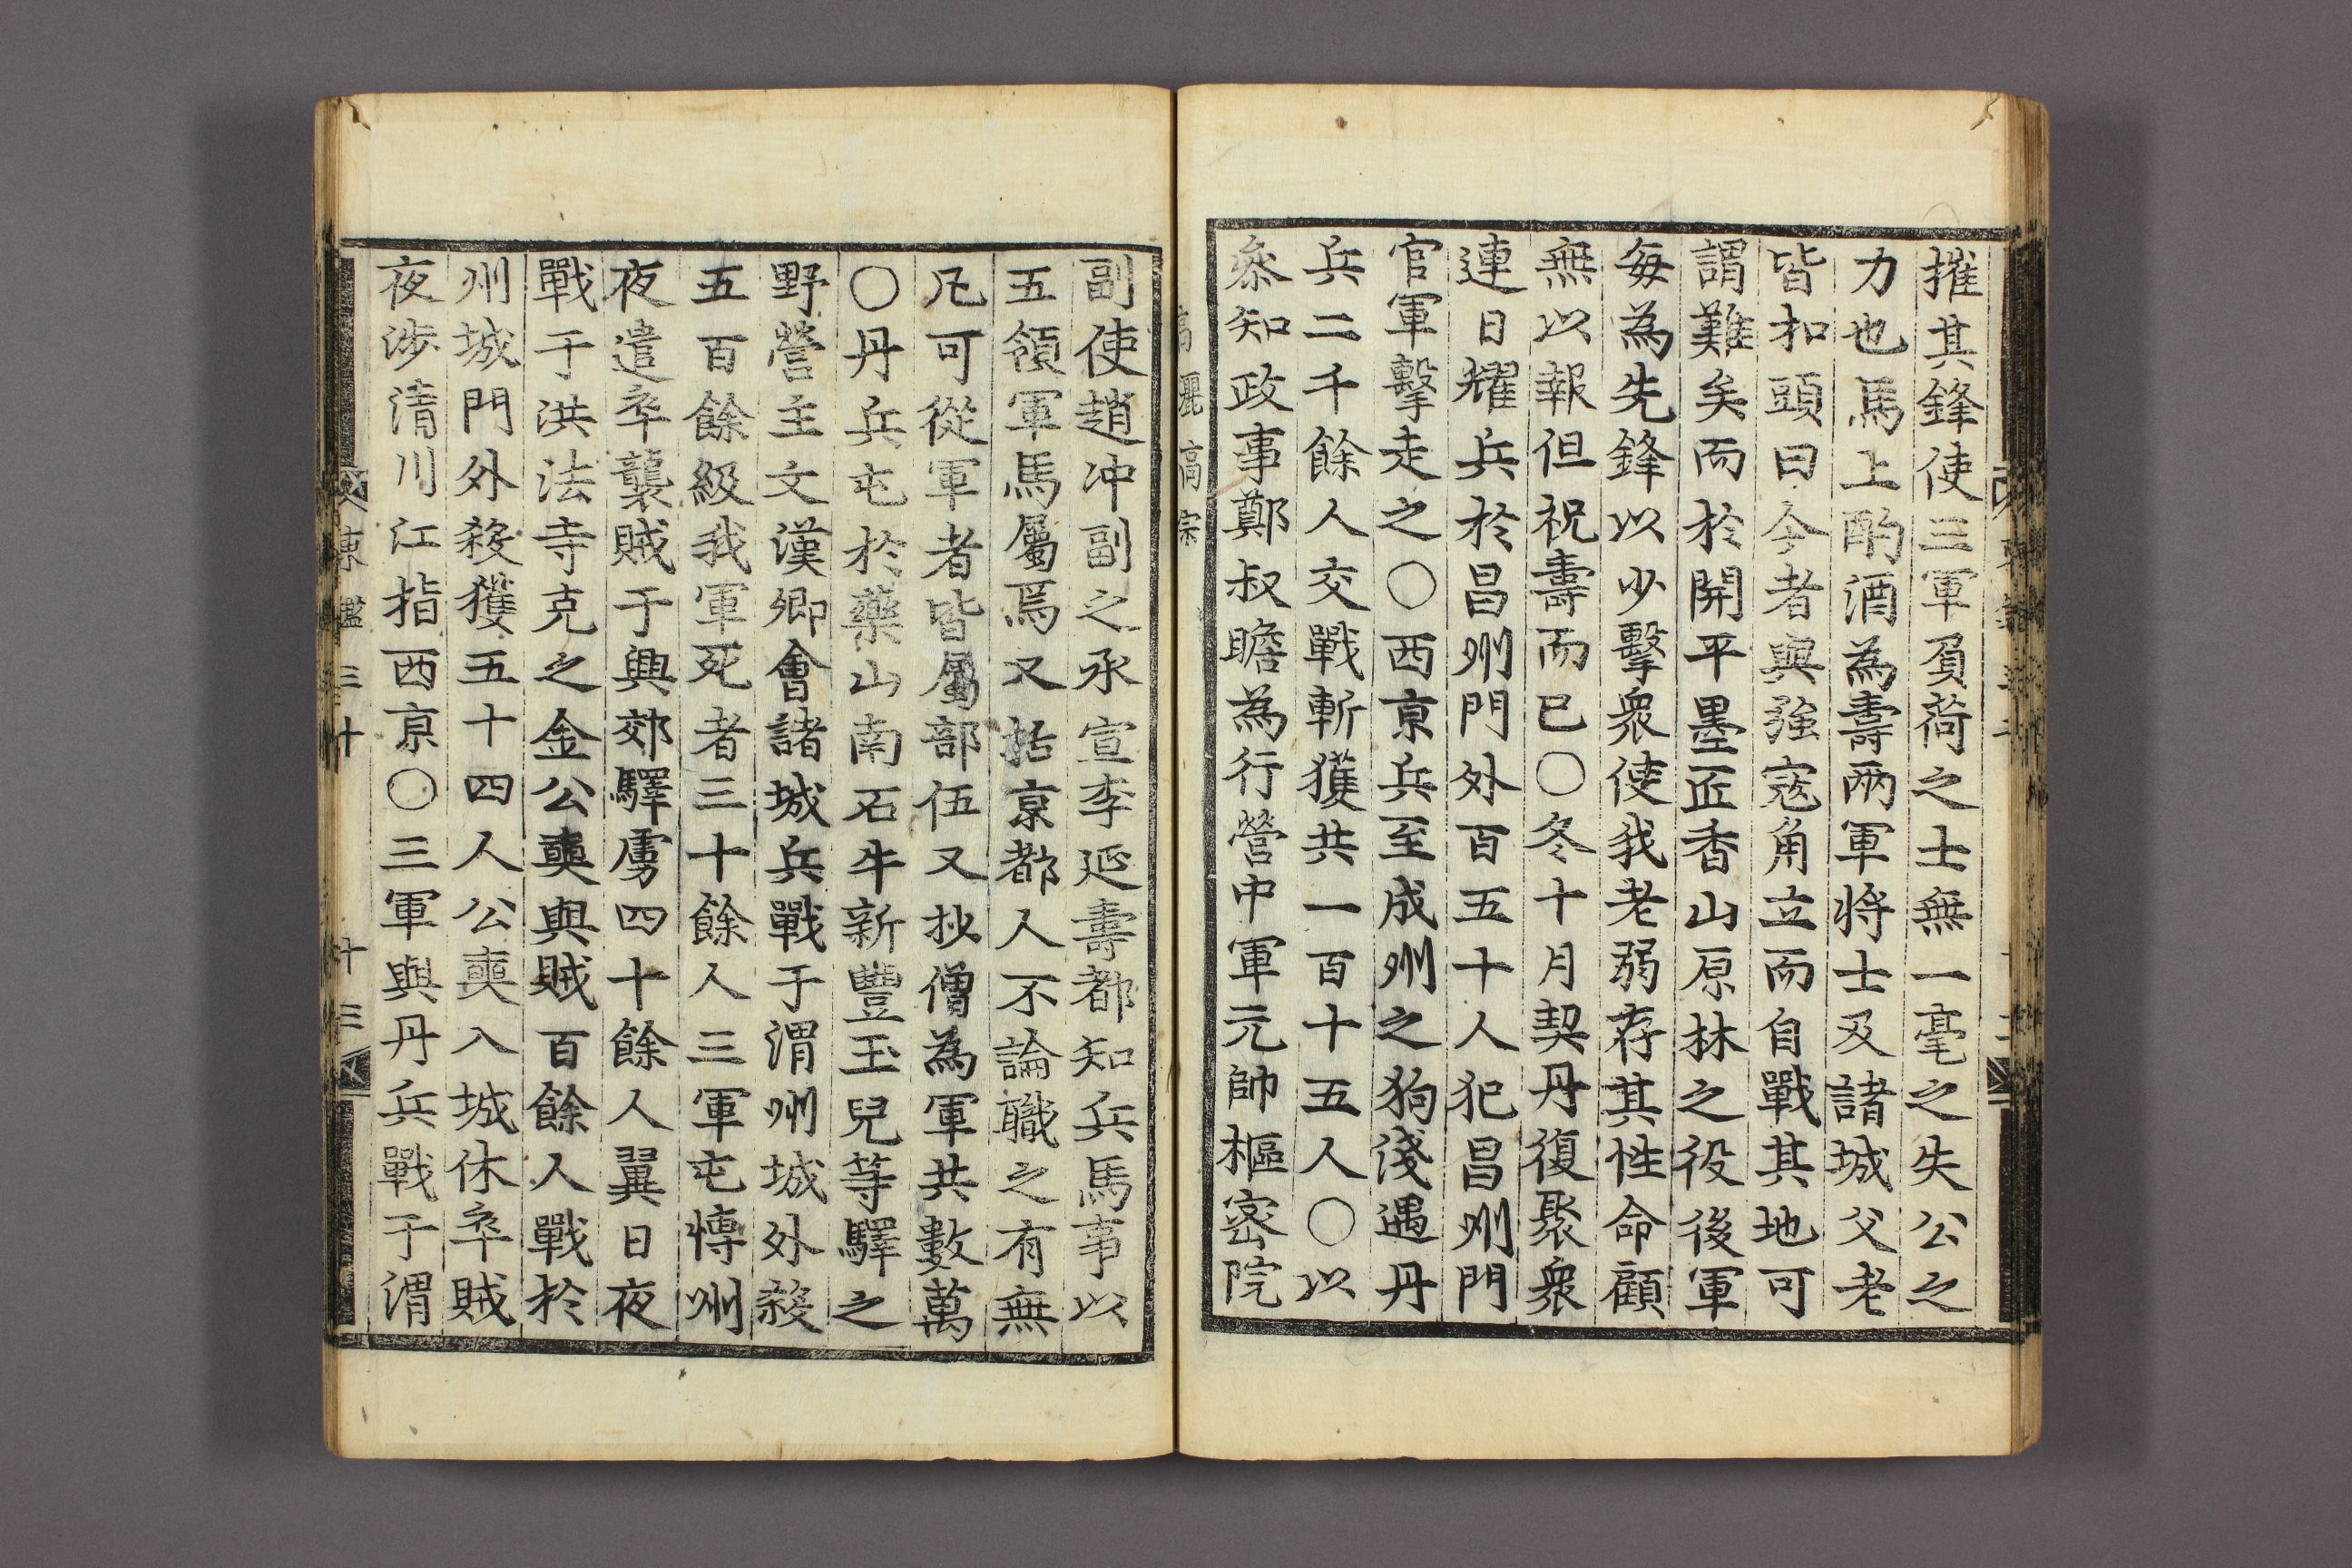 摧其鋒使三軍負荷之士無一毫之失公之
力也馬上酌酒為壽兩軍將士及諸城父老
皆扣頭曰今者與強寇角立而自戰其地可
謂難矣而於開平墨匠香山原林之役後軍
每為先鋒以少擊衆使我老弱存其性命顧
無以報但祝壽而已〇冬十月契丹復聚衆
連日耀兵於昌州門外百五十人犯昌州門
官軍擊走之〇西京兵至成州之狗淺遇丹
兵二千餘人交戰斬獲共一百十五人〇以
叅知政事鄭叔瞻為行營中軍元帥樞密院
高麗高宗
副使趙冲副之承宣李延壽都知兵馬事以
五領軍馬屬焉又括京都人不論職之有無
凡可從軍者皆屬部伍又抄僧為軍共數萬
〇丹兵屯於藥山南石牛新豐玉兒等驛之
野營主文漢卿會諸城兵戰于渭州城外殺
五百餘級我軍死者三十餘人三軍屯博州
夜遣卒襲賊于興郊驛虜四十餘人翼日夜
戰于洪法寺克之金公奭與賊百餘人戰於
州城門外殺獲五十四人公奭入城休卒賊
夜涉清川江指西京〇三軍與丹兵戰于渭
東鑑三十 十三